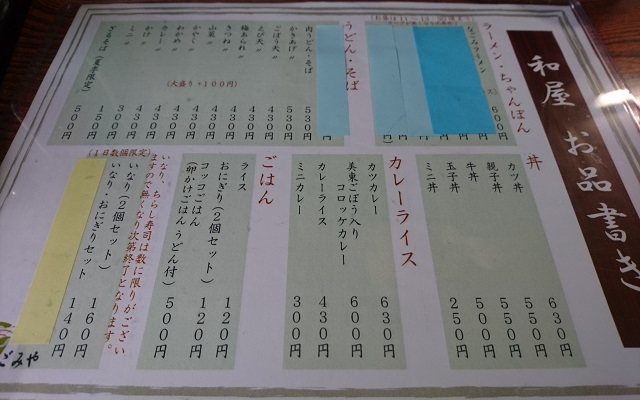 和屋 お品書き
ラーメン・ちゃんぽん
なごみラーメン
600円
うどん・そば
肉うどん・そば
かきあげ 〃 530円
ごぼう天 〃 430円
えび天 〃 430円
梅あられ 〃 430円
きつね 〃 430円
山菜 〃 430円
かやく 〃 430円
わかめ 〃 430円
カレー 〃 430円
かけ 〃 300円
ミニ 〃 150円
ざるそば(夏季限定) 500円
(大盛り+100円)
丼
カツ丼 630円
親子丼 550円
牛丼 550円
玉子丼 550円
ミニ丼 250円
カレーライス
カツカレー 630円
美東ごぼう入り
コロッケカレー 600円
カレーライス 430円
ミニカレー 300円
ごはん
ライス
おにぎり(2個セット) 120円
コッコごはん 120円
(卵かけごはん うどん付) 500円
いなり、ちらし寿司は数に限りがござい
ますので無くなり次第終了となります。
(1日数個限定)
いなり(2個セット) 160円
いなり・おにぎりセット 140円
ごみや